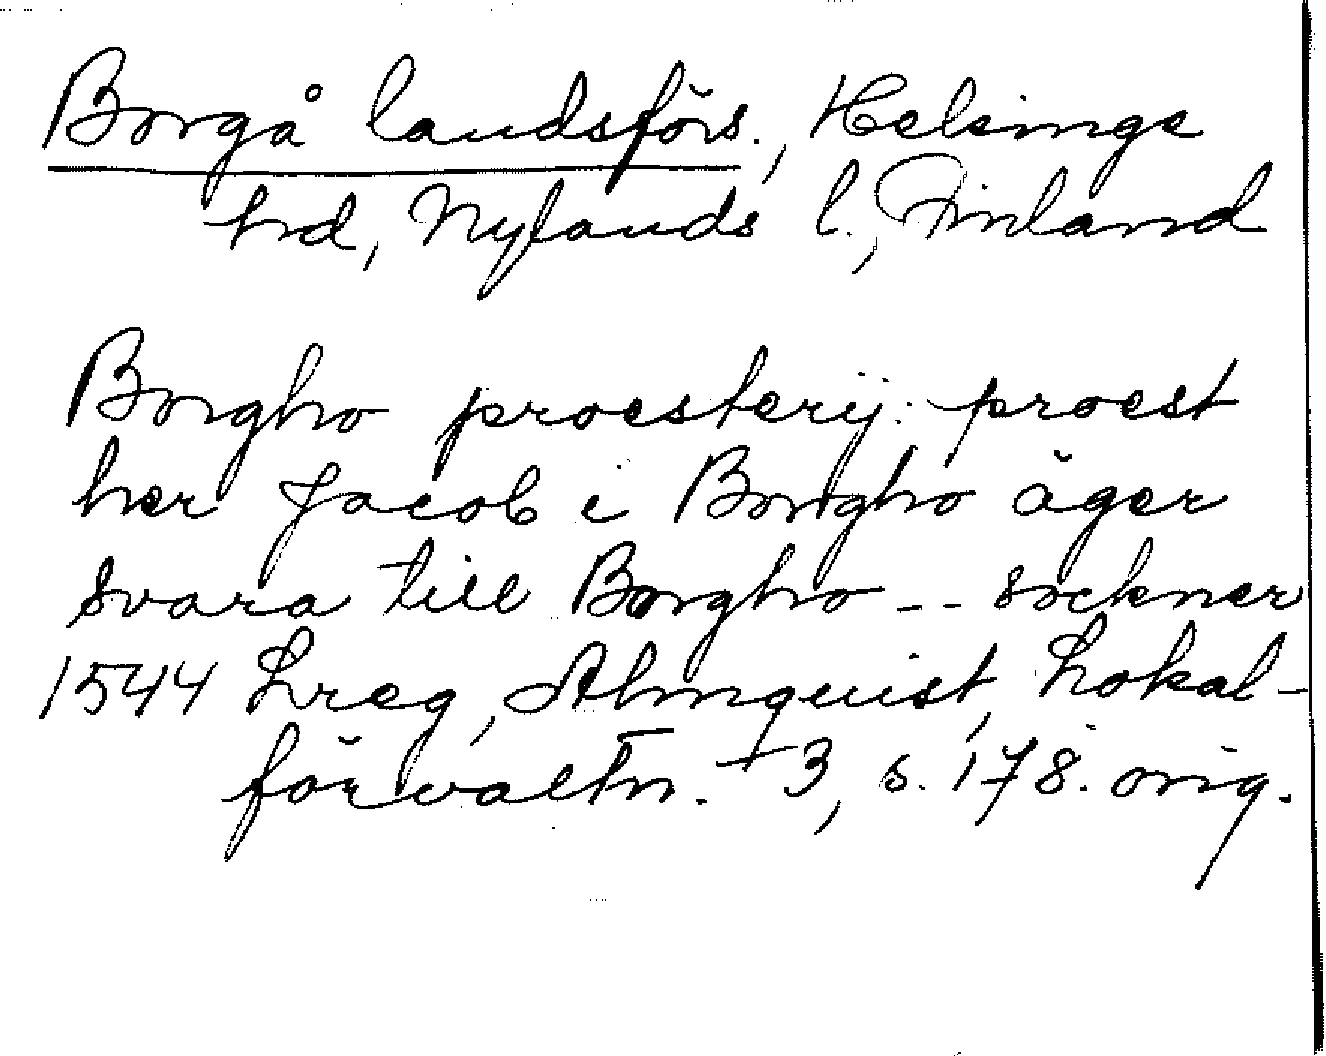 Borgå landsförs., Helsinge
hd, Nylands l., Finland
Borgho proestery: proest
her Jacob i Borgho äger
svara till Borgho -- sockner
1544 Lreg, Almquist, Lokal-
förvaltn. 3, s. 178. orig.